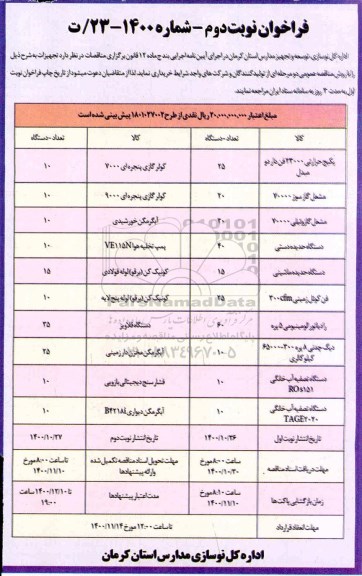 فراخوان نوبت دوم - شماره ۱۴۰۰-۲۳/ت
اداره کل نوسازی، توسعه و تجهیز مدارس استان کرمان در اجرای آیین نامه اجرایی بند ج ماده ۱۲ قانون برگزاری مناقصات در نظر دارد تجهیزات به شرح ذیل
را با روش مناقصه عمومی دو مرحله ای از تولیدکنندگان و شرکت های واجد شرایط خریداری نماید. لذا از متقاضیان دعوت میشود از تاریخ چاپ فراخوان نوبت
اول به مدت روز به سامانه ستاد ایران مراجعه نمایند.
مبلغ اعتبار ۲۰.۰۰۰.۰۰۰.۰۰۰ ریال نقدی از طرح ۱۸۰۱۰۲۷۰۰۲ پیش بینی شده است
کالا تعداد-دستگاه کالا تعداد-دستگاه
پکیج حرارتی ۲۳۰۰۰ فن دار دو مبدل ۲۵ کولر گازی پنجره ای ۷۰۰۰ ۱۰
مشعل گازسوز ۴۰۰۰۰ ۲۰ کولر گازی پنجره ای ۹۰۰۰ ۱۰
مشعل گازوئیلی ۴۰۰۰۰ ۲۰ آبگرمکن خورشیدی ۱۰
دستگاه حدیده دستی ۴۰ پمپ تخلیه هوا VE115N ۱۰
دستگاه حدیده ماشینی ۱۵ کونیک کن (برقو) لوله فولادی ۱۵
فن کوئل زمینی ۳۰۰cfm ۲۵ کونیک کن (برقو) لوله پنج لایه ۱۰
رادیاتور آلومینیومی ۵ پره ۶۰ دستگاه کلاویز ۳۵
دیگ چدنی ۸ پره ۳۰۰-۶۵۰۰۰ کیلو کالری ۱۰ آبگرمکن مخزن دار زمینی ۲۵
دستگاه تصفیه آب خانگی ROs151 ۱۰ فشار سنج دیجیتالی بازویی ۱۰
دستگاه تصفیه آب خانگی TAGE2020 ۱۰ آبگرمکن دیواری B4218i ۱۰
تاریخ انتشار نوبت اول ۱۴۰۰/۱۰/۲۶ تاریخ انتشار نوبت دوم ۱۴۰۰/۱۰/۲۷
مهلت دریافت اسناد مناقصه تا ساعت ۸:۰۰ مورخ ۱۴۰۰/۱۰/۳۰ مهلت تحویل اسناد مناقصه تکمیل شده وارائه پیشنهادها تا ساعت ۸:۰۰ مورخ ۱۴۰۰/۱۱/۱۰
زمان بازگشایی پاکت ها ساعت ۸:۱۰ مورخ ۱۴۰۰/۱۱/۱۰ مدت اعتبار پیشنهادها تا ۱۴۰۰/۱۲/۱۰ ساعت ۱۹:۰۰
مهلت انعقاد قرارداد تا ساعت ۱۲:۰۰ مورخ ۱۴۰۰/۱۱/۱۴
اداره کل نوسازی مدارس استان کرمان